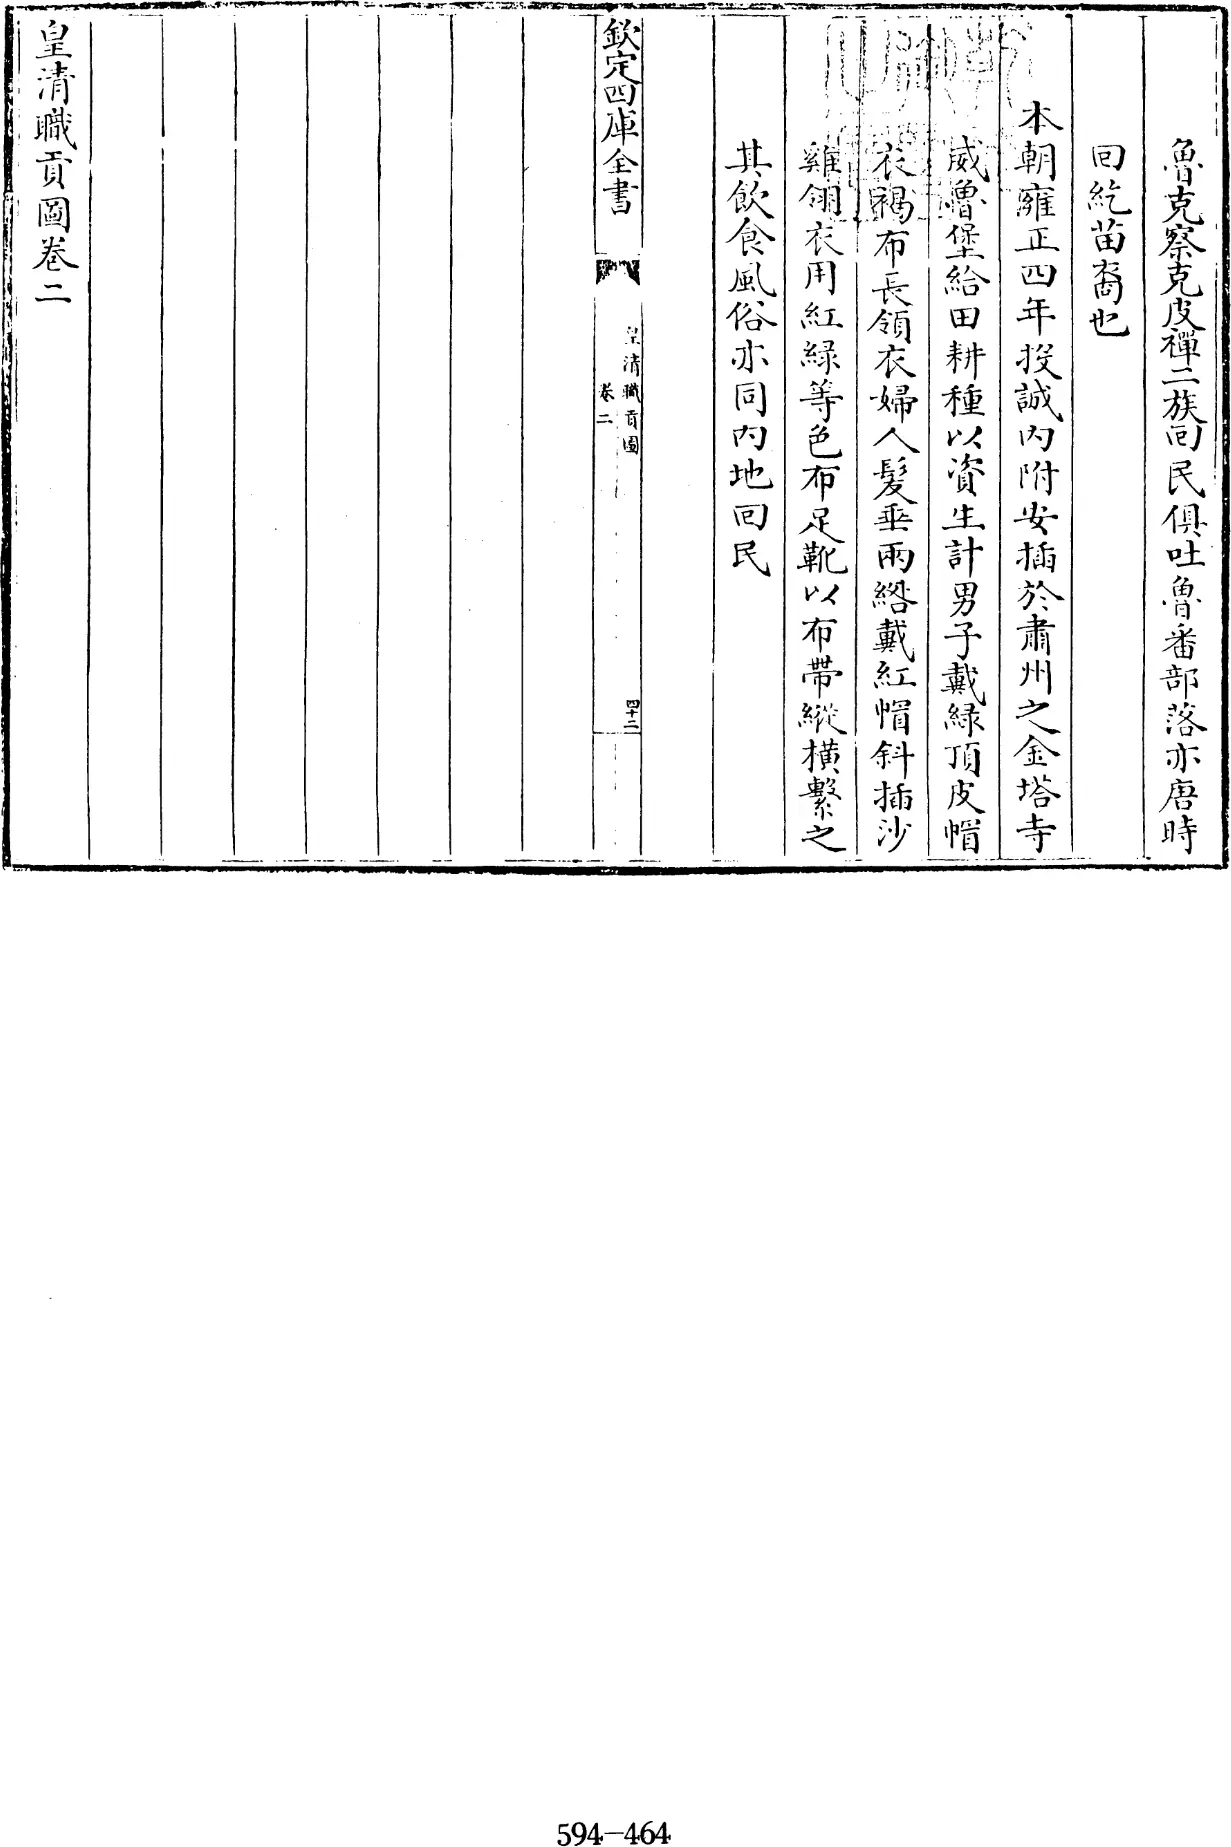 魯克察克皮禪二族回民俱吐魯番部落亦唐時
回紇苗裔也
本朝雍正四年投誠內附安插於肅州之金塔寺
威魯堡給田耕種以資生計男子戴綠頂皮帽
衣褐布長領衣婦人髮垂兩綹戴紅帽斜插沙
雞翎衣用紅綠等色布足靴以布帶縱橫繫之
其飲食風俗亦同內地回民
欽定四庫全書
皇清職貢圖
卷二
四十二
皇清職貢圖卷二
594-464